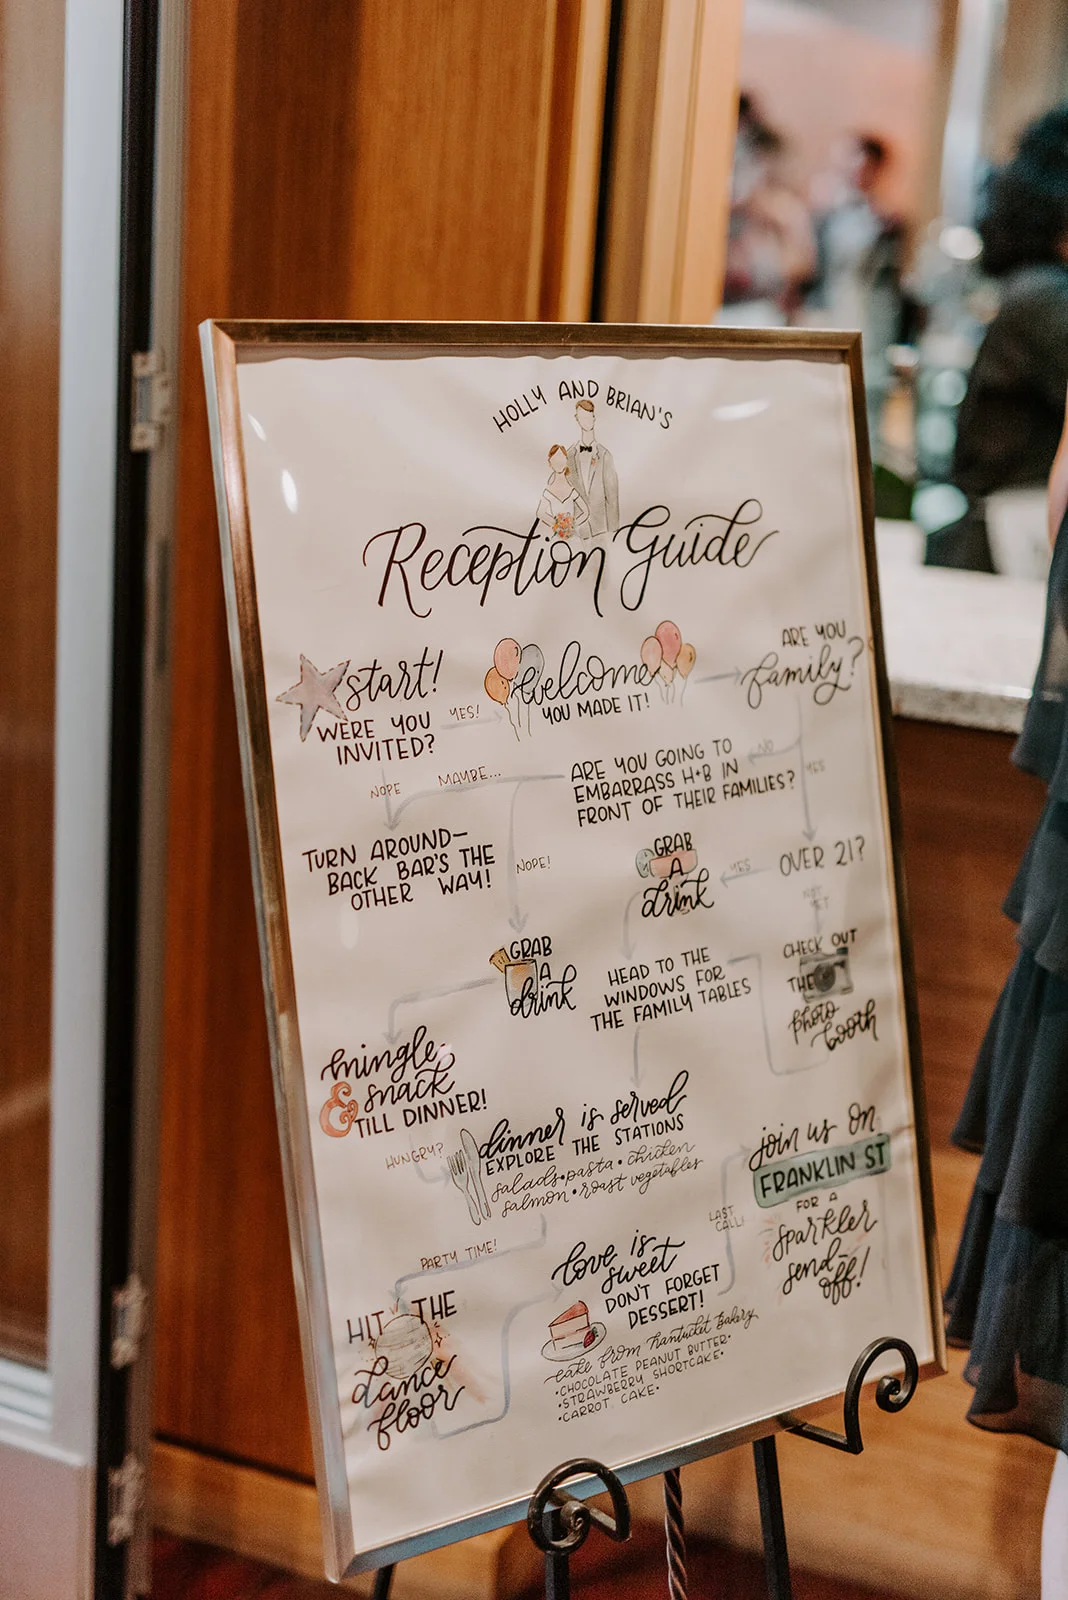 HOLLY AND BRIAN'S
Reception Guide
start!
WERE YOU
INVITED?
YES!
welcome
YOU MADE IT!
ARE YOU
family?
NOPE
MAYBE...
ARE YOU GOING TO
EMBARRASS H+B IN
FRONT OF THEIR FAMILIES?
NO
YES
TURN AROUND-
BACK BAR'S THE
OTHER WAY!
NOPE!
GRAB
A
drink
YES
OVER 21?
NOT
YET
GRAB
A
drink
HEAD TO THE
WINDOWS FOR
THE FAMILY TABLES
CHECK OUT
THE
photo
booth
mingle
& snack
TILL DINNER!
HUNGRY?
dinner is served
EXPLORE THE STATIONS
salads • pasta • chicken
salmon • roast vegetables
join us on
FRANKLIN ST
FOR A
sparkler
send-
off!
LAST
CALL!
PARTY TIME!
love is
sweet
DON'T FORGET
DESSERT!
cake from nantucket bakery
•CHOCOLATE PEANUT BUTTER•
•STRAWBERRY SHORTCAKE•
•CARROT CAKE•
HIT THE
dance
floor